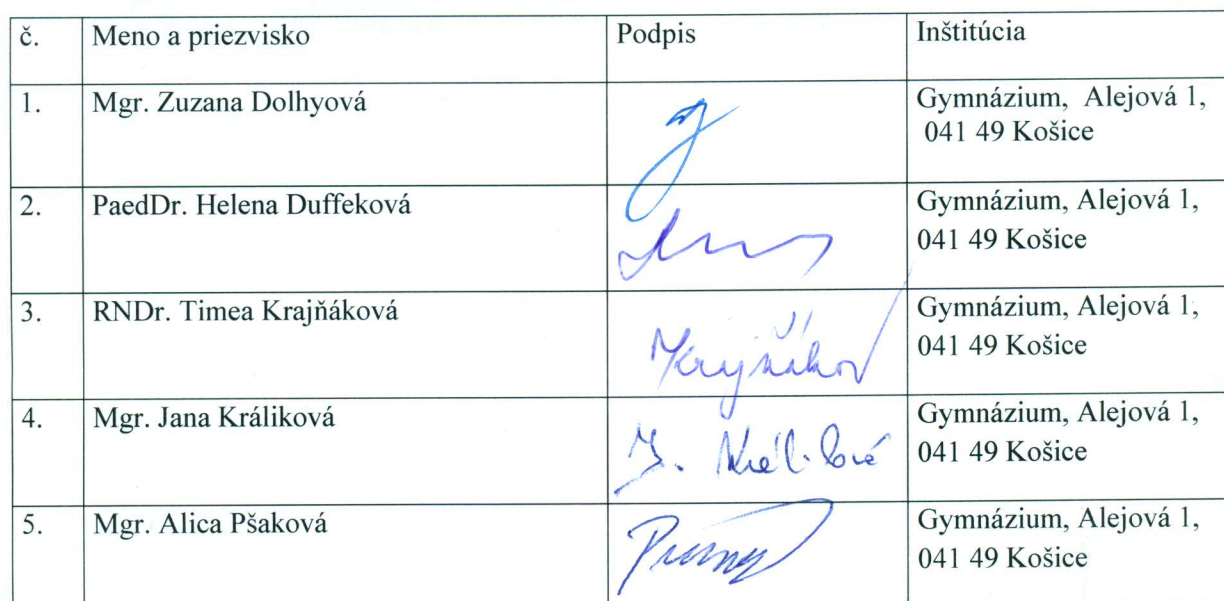 č. Meno a priezvisko Podpis Inštitúcia
1. Mgr. Zuzana Dolhyová Gymnázium, Alejová 1,
041 49 Košice
2. PaedDr. Helena Duffeková Gymnázium, Alejová 1,
041 49 Košice
3. RNDr. Timea Krajňáková Gymnázium, Alejová 1,
Krajňákov 041 49 Košice
4. Mgr. Jana Králiková Gymnázium, Alejová 1,
J. Králiková 041 49 Košice
5. Mgr. Alica Pšaková Gymnázium, Alejová 1,
041 49 Košice